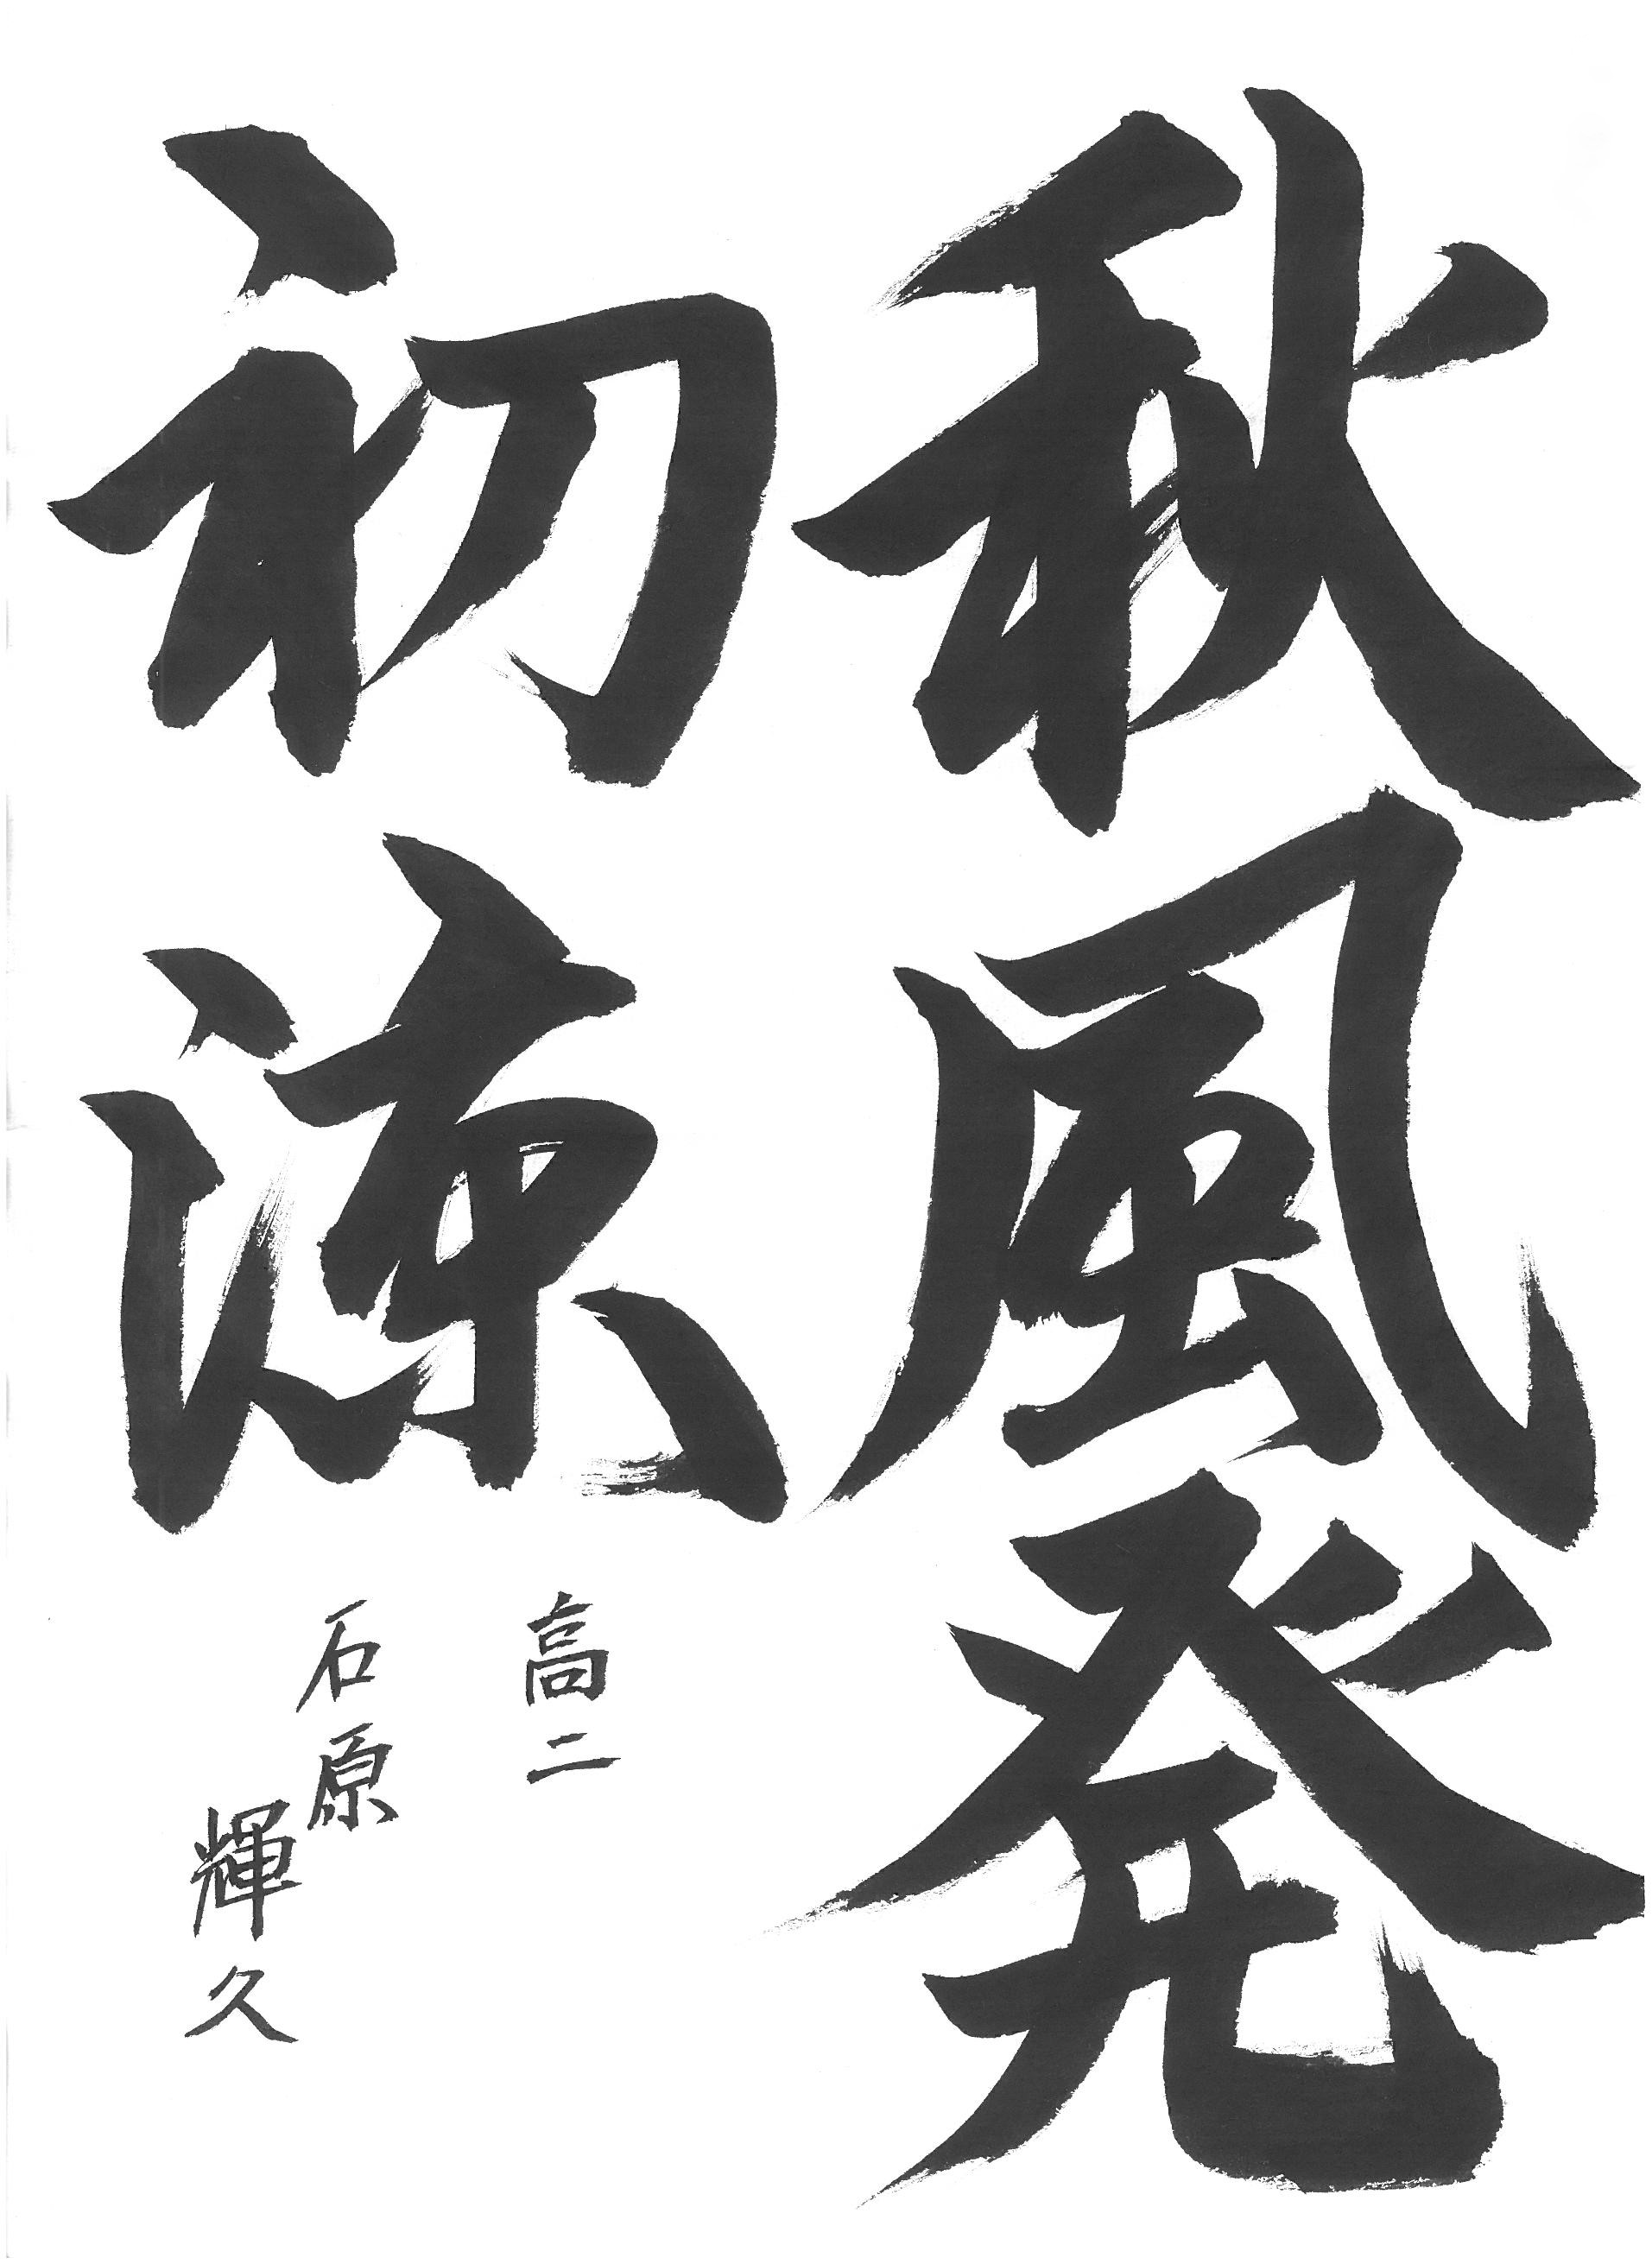 秋風発
初涼
高二
石原輝久